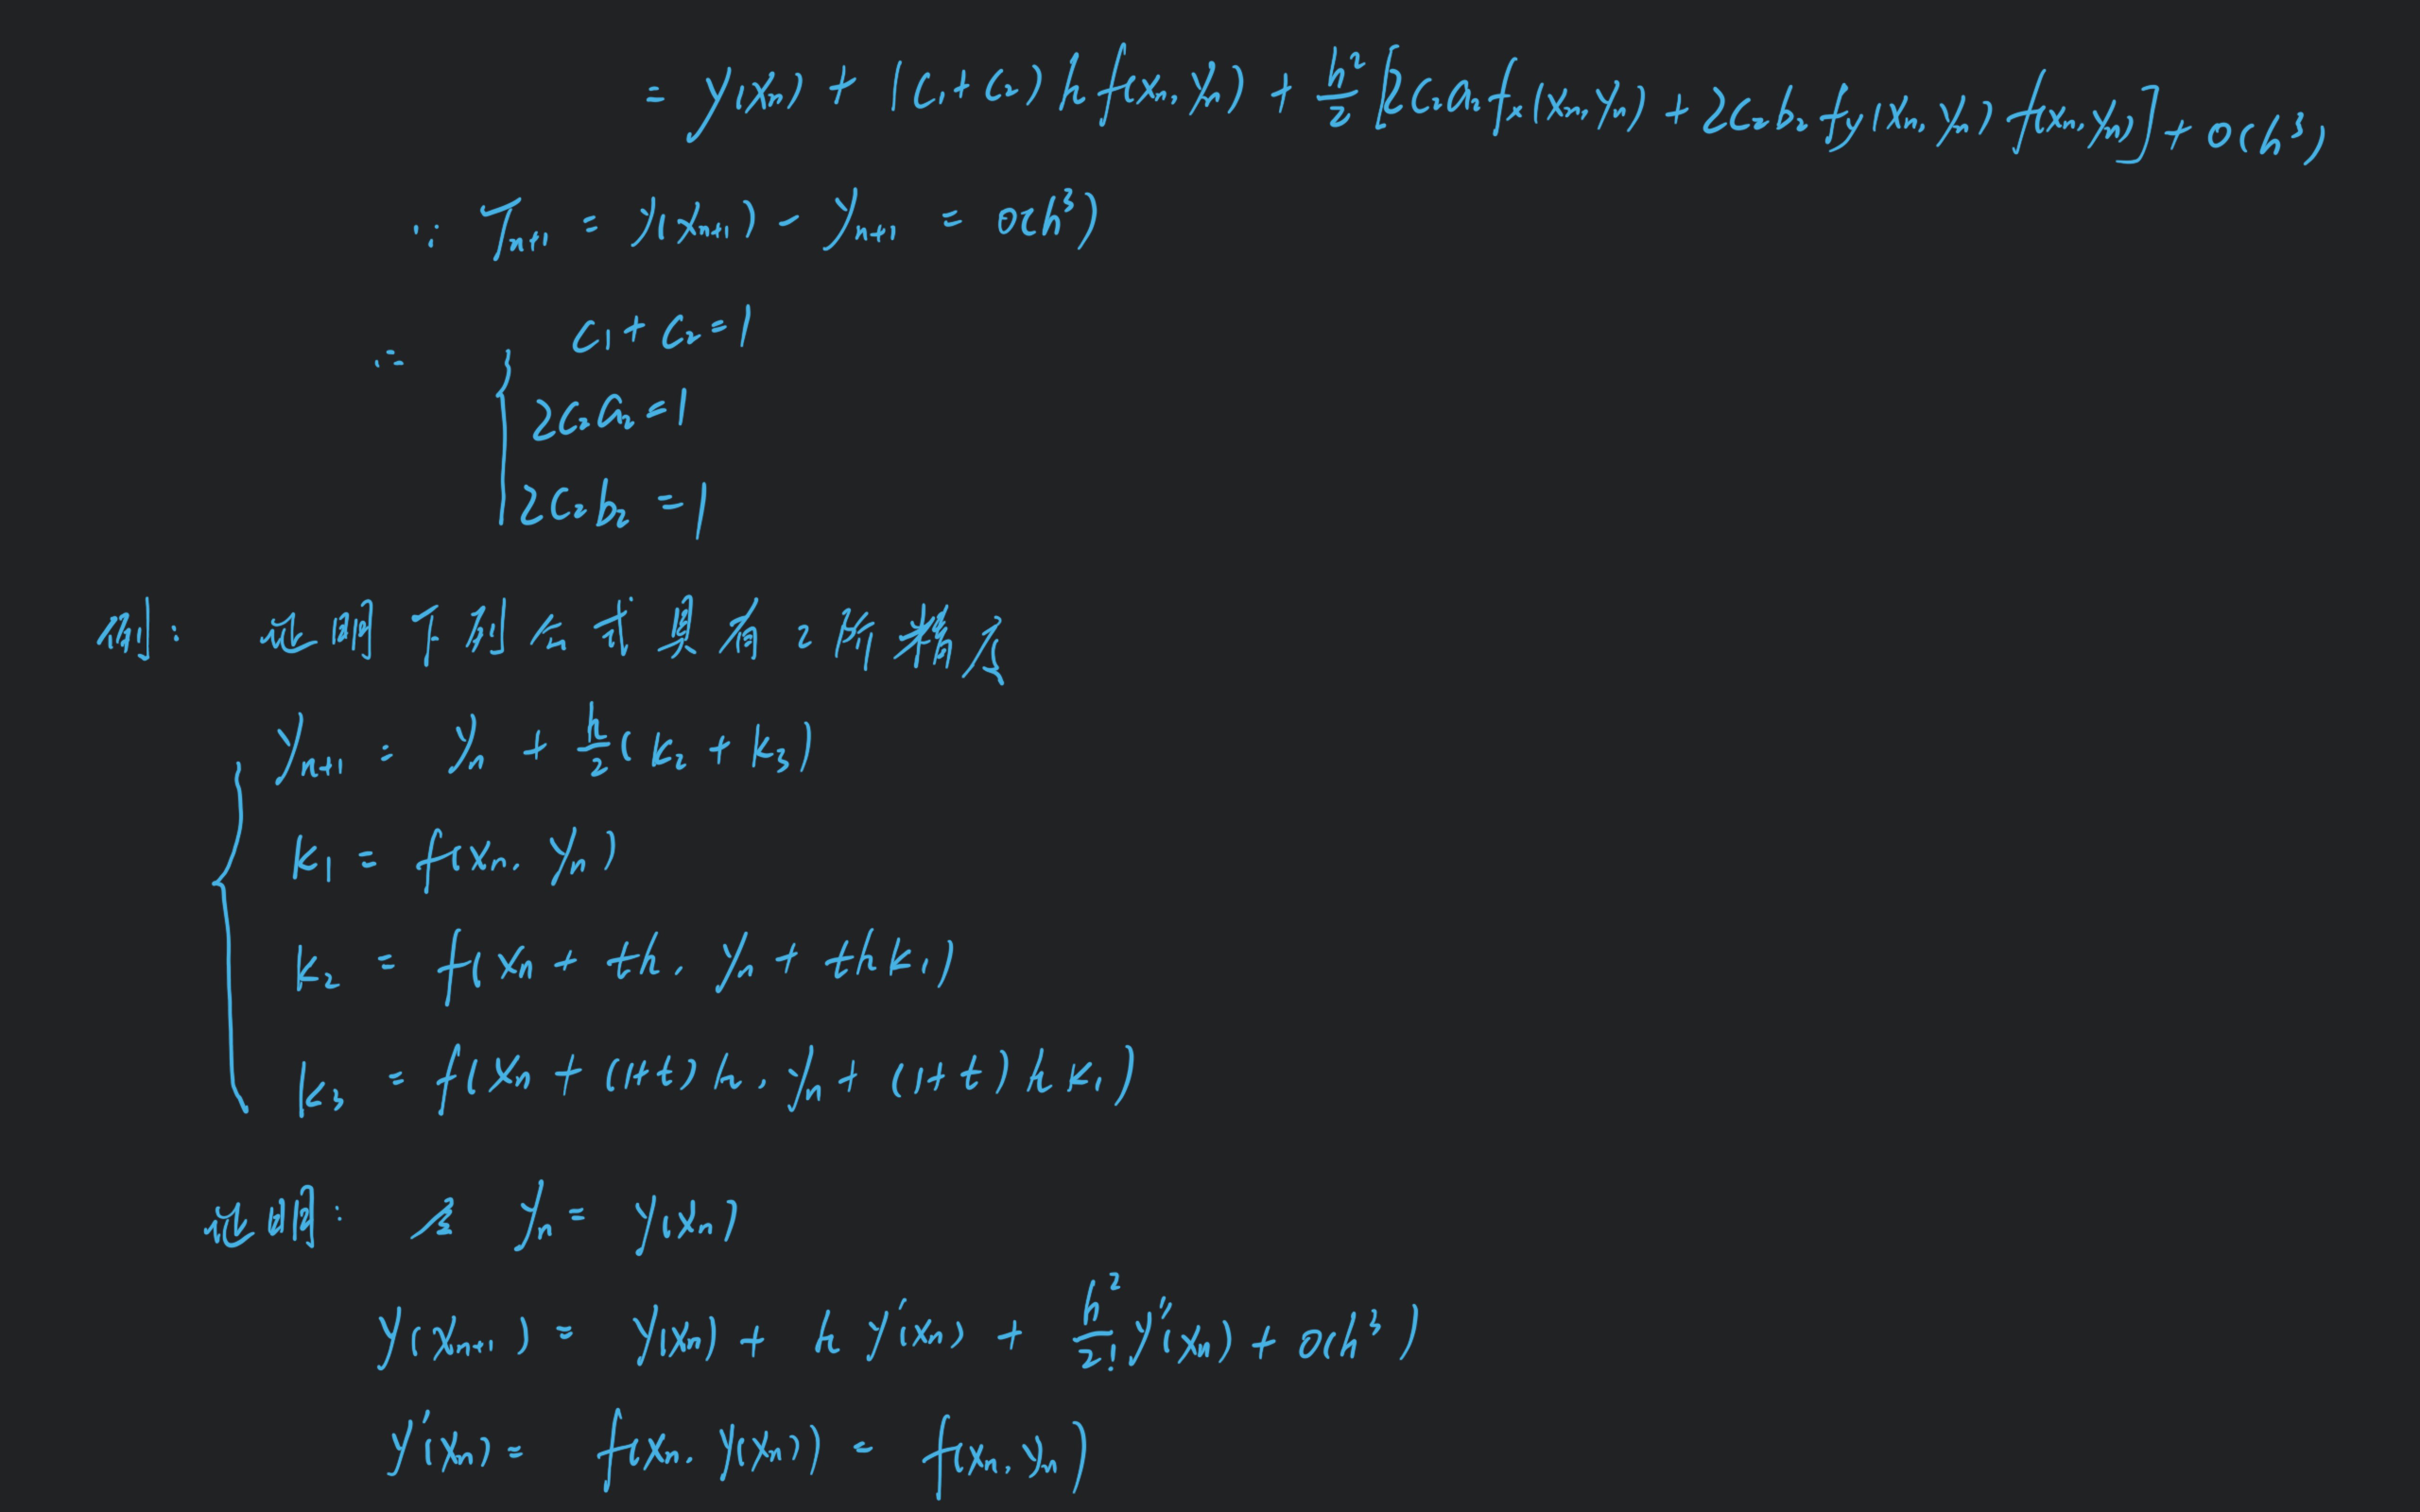 = y(xₙ) + (c₁+c₂) h f(xₙ, yₙ) + h²/2 [2c₂a₂fₓ(xₙ, yₙ) + 2c₂b₂f_y(xₙ, yₙ) f(xₙ, yₙ)] + o(h³)
∵ Tₙ₊₁ = y(xₙ₊₁) - yₙ₊₁ = o(h³)
∴ { c₁+c₂=1
2c₂a₂=1
2c₂b₂=1
例: 证明下列公式具有2阶精度
{ yₙ₊₁ = yₙ + h/2 (k₂ + k₃)
k₁ = f(xₙ, yₙ)
k₂ = f(xₙ + th, yₙ + thk₁)
k₃ = f(xₙ + (1+t)h, yₙ + (1+t)hk₁)
证明: yₙ = y(xₙ)
y(xₙ₊₁) = y(xₙ) + h y'(xₙ) + h²/2! y''(xₙ) + o(h³)
y'(xₙ) = f(xₙ, y(xₙ)) = f(xₙ, yₙ)